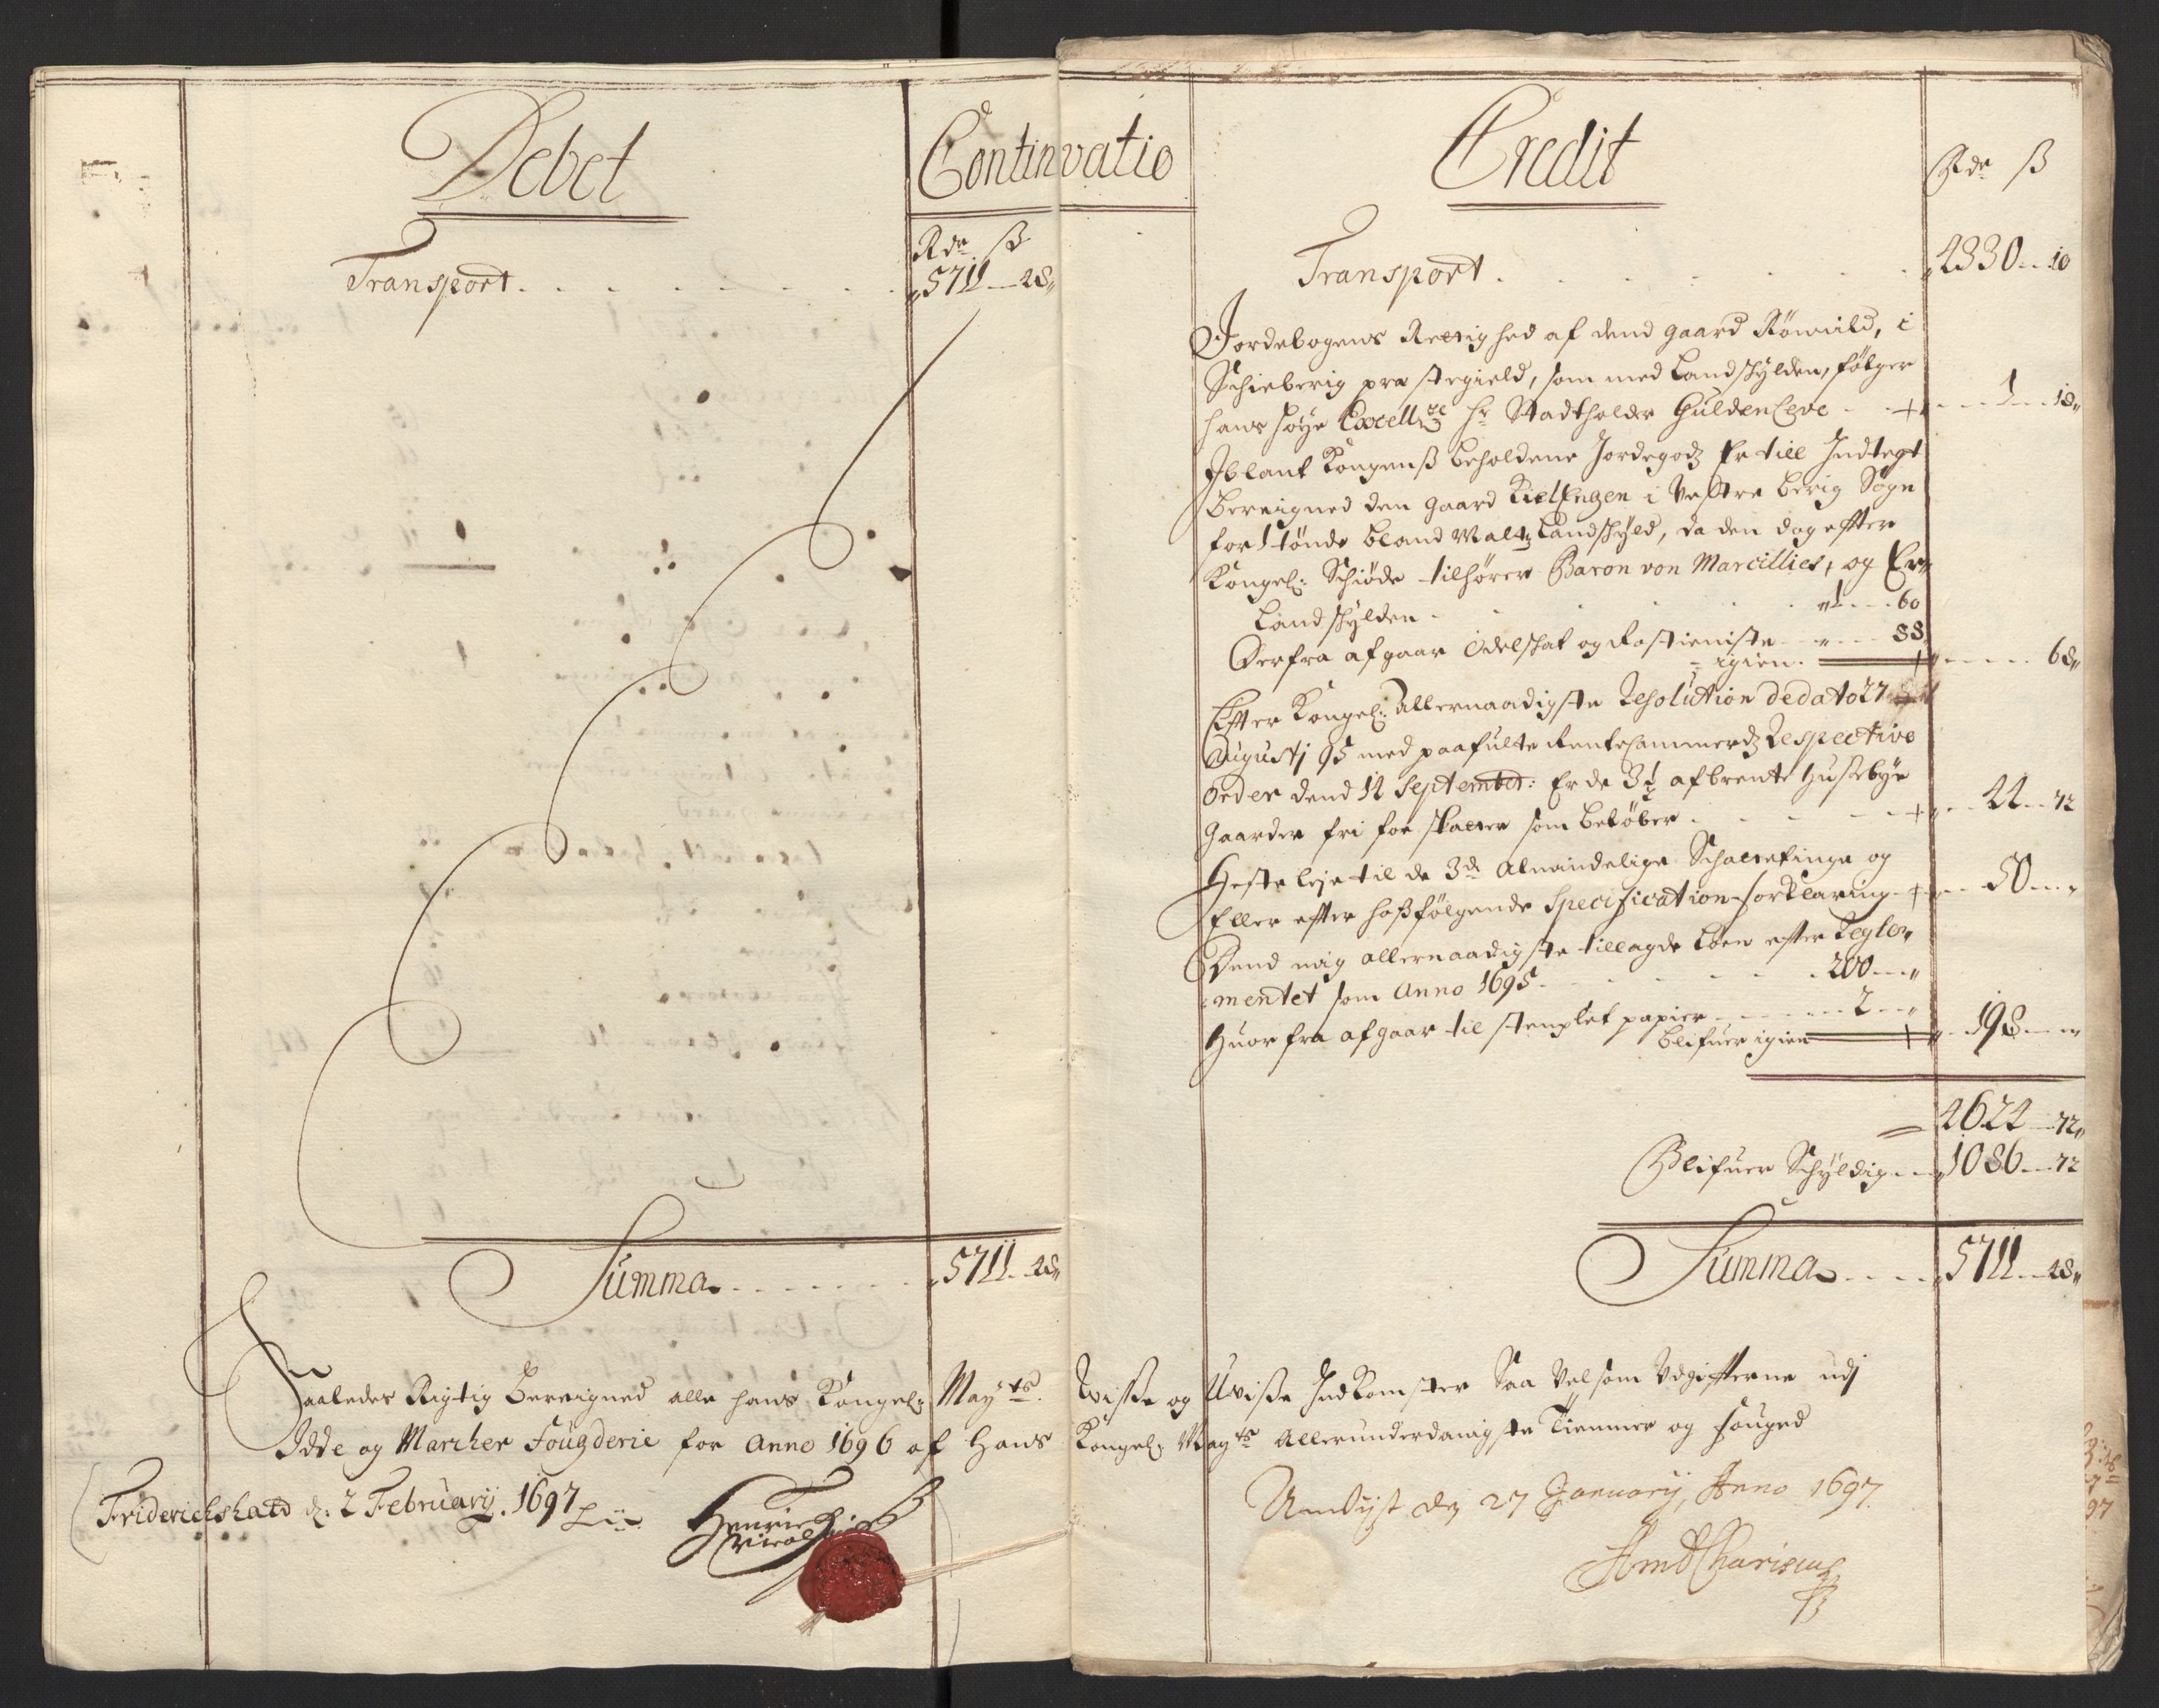 Debet
Continvatio
Rdr ß
Transport . . . . . . . . 5711 — 48
Summa . . . . . . . 5711 — 48
Credit
Rdr ß
Transport . . . . . . . 4330 — 10
Jordebogens Rettighed af dend gaard Römmild, i
Schieberig præstegield, som med Landskylden, følger
hans høye Excell: Hr Stadtholder Guldenleve — 1 — 18
Iblant Kongens beholdene Jordegodz Er till Indtegt
beregned den gaard KielEngen i Vestre Berig Sogn
for 1 tønde bland Malt Landskyld, da den dog efter
Kongel: Schiøde tilhører Baron von Marcillies, og Er
Landskylden . . . . . 1 — 60
Derfra afgaar Odelskat og Rostieniste — 88
igien — 68
Efter Kongel: allernaadigste Resolution de dato 27
Augustj 95 med paafulte RenteCammerdz Respective
Order dend 11 September: Er de 3½ afbrente Husebye
Gaarder fri for skatter som beløber — 44 — 72
Heste leje til de 3de Almindelige Schattetinge og
Eller efter hosfølgende Specification forklaring — 50 —
Dend mig allernaadigste tillagde Løen efter Regle-
mentet som Anno 1695 . . . . 200 —
Huor fra afgaar til stemplet papier — 2 —
blifuer igien — 198 —
4624 — 72
Blifuer Schyldig — 1086 — 72
Summa . . . . 5711 — 48
Saaledes Rigtig beregned alle hans Kongel: Mayts Wisse og Uvisse Indkomster Saa vel som Udgifterne udj
Idde og Marcher Fougderie for Anno 1696 af Hans Kongel: Mayts Allerunderdanigste Tienner og fouged
Friderichshald d: 2 February. 1697
Henrich
27 January, Anno 1697
Charisius